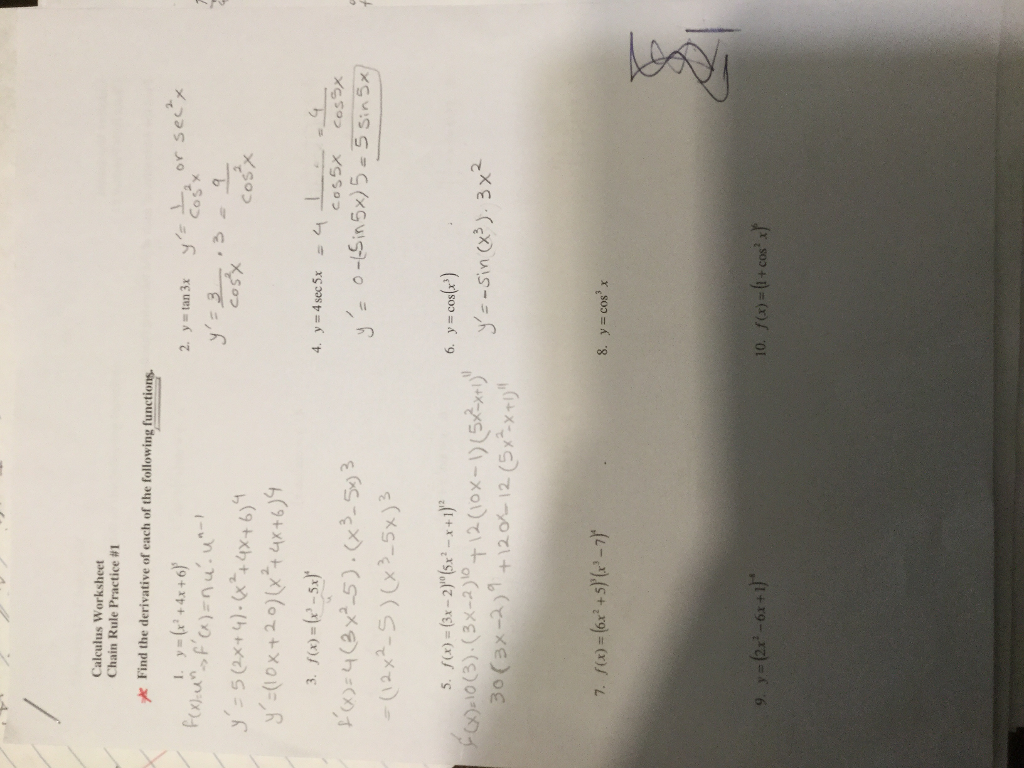 Calculus Worksheet
Chain Rule Practice #1
Find the derivative of each of the following functions.
1. y = (x² + 4x + 6)⁵
f(x)=uⁿ → f'(x) = n u'·uⁿ⁻¹
y' = 5(2x+4)·(x²+4x+6)4
y' = (10x+20)(x²+4x+6)4
2. y = tan 3x y' = 1/cos²x or sec²x
y' = 3/cos²x · 3 = 9/cos²x
3. f(x) = (x³ − 5x)⁴
f'(x) = 4(3x²−5)·(x³−5x)3
= (12x²−5)(x³−5x)³
4. y = 4 sec 5x = 4 1/cos5x = 4/cos5x
y' = 0−(Sin5x)5 = 5 Sin5x
5. f(x) = (3x − 2)¹⁰(5x² − x + 1)¹²
f'(x)=10(3)·(3x−2)¹⁰ + 12(10x−1)(5x²−x+1)¹¹
30(3x−2)⁹ + 120x−12(5x²−x+1)¹¹
6. y = cos(x³)
y' = −sin(x³)·3x²
7. f(x) = (6x² + 5)³(x³ − 7)⁴
8. y = cos³ x
9. y = (2x³ − 6x + 1)⁻⁸
10. f(x) = (1 + cos² x)⁶